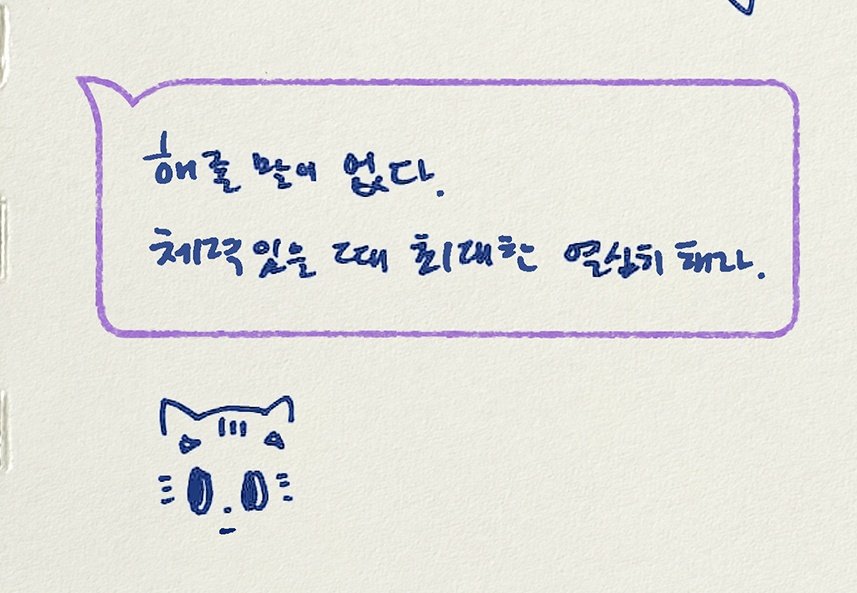 해줄 말이 없다.
체력있을 때 최대한 열심히 해라.